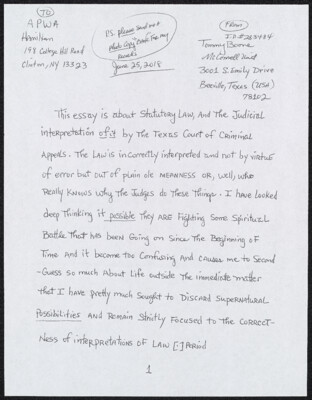 (TO)
APWA
Hamilton
198 College Hill Road
Clinton, NY 13323
P.S. please send out
photo copy back for my
records
June 25, 2018
(FROM)
Tommy Boone
McConnell Unit
3001 S. Emily Drive
Beeville, Texas (USA)
78102
This essay is about Statutory Law, and the Judicial
interpretation of it by the Texas Court of Criminal
Appeals. The Law is incorrectly interpreted and not by virtue
of error but out of plain ole meanness or, well, who
Really Knows why the Judges do These Things. I have looked
deep Thinking it possible They are Fighting Some Spiritual
Battle That has been Going on Since The Beginning of
Time and it became Too Confusing and causes me to Second
-Guess so much About Life outside The immediate matter
that I have pretty much Sought to Discard Supernatural
Possibilities and Remain Strictly Focused to The correct-
Ness of interpretations of Law [.] Period
1